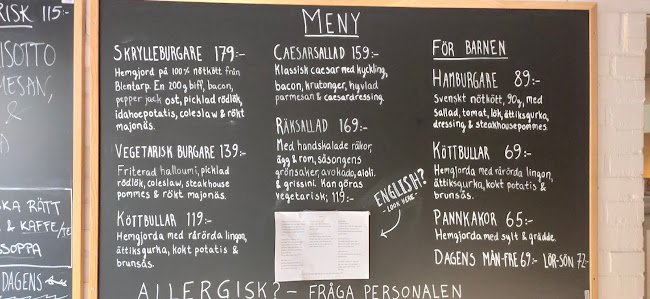 RISK 115:-
ISOTTO
MESAN,
&
A
SKA RÄTT
& KAFFE/TE
SSOPPA
DAGENS
MENY
SKRYLLEBURGARE 179:-
Hemgjord på 100% nötkött från
Blentarp. En 200g biff, bacon,
pepper jack ost, picklad rödlök,
idahoepotatis, coleslaw & rökt
majonäs.
VEGETARISK BURGARE 139:-
Friterad halloumi, picklad
rödlök, coleslaw, steakhouse
pommes & rökt majonäs.
KÖTTBULLAR 119:-
Hemgjorda med rårörda lingon,
ättiksgurka, kokt potatis &
brunsås.
CAESARSALLAD 159:-
Klassisk caesar med kyckling,
bacon, krutonger, hyvlad
parmesan & caesardressing.
RÄKSALLAD 169:-
Med handskalade räkor,
ägg & rom, säsongens
grönsaker, avokado, aioli
& grissini. Kan göras
vegetarisk; 119:-
ENGLISH?
- LOOK HERE -
FÖR BARNEN
HAMBURGARE 89:-
Svenskt nötkött, 90g, med
sallad, tomat, lök, ättiksgurka,
dressing & steakhousepommes.
KÖTTBULLAR 69:-
Hemgjorda med rårörda lingon,
ättiksgurka, kokt potatis &
brunsås.
PANNKAKOR 65:-
Hemgjorda med sylt & grädde.
DAGENS MÅN-FRE 69:- LÖR-SÖN 72:-
ALLERGISK? - FRÅGA PERSONALEN